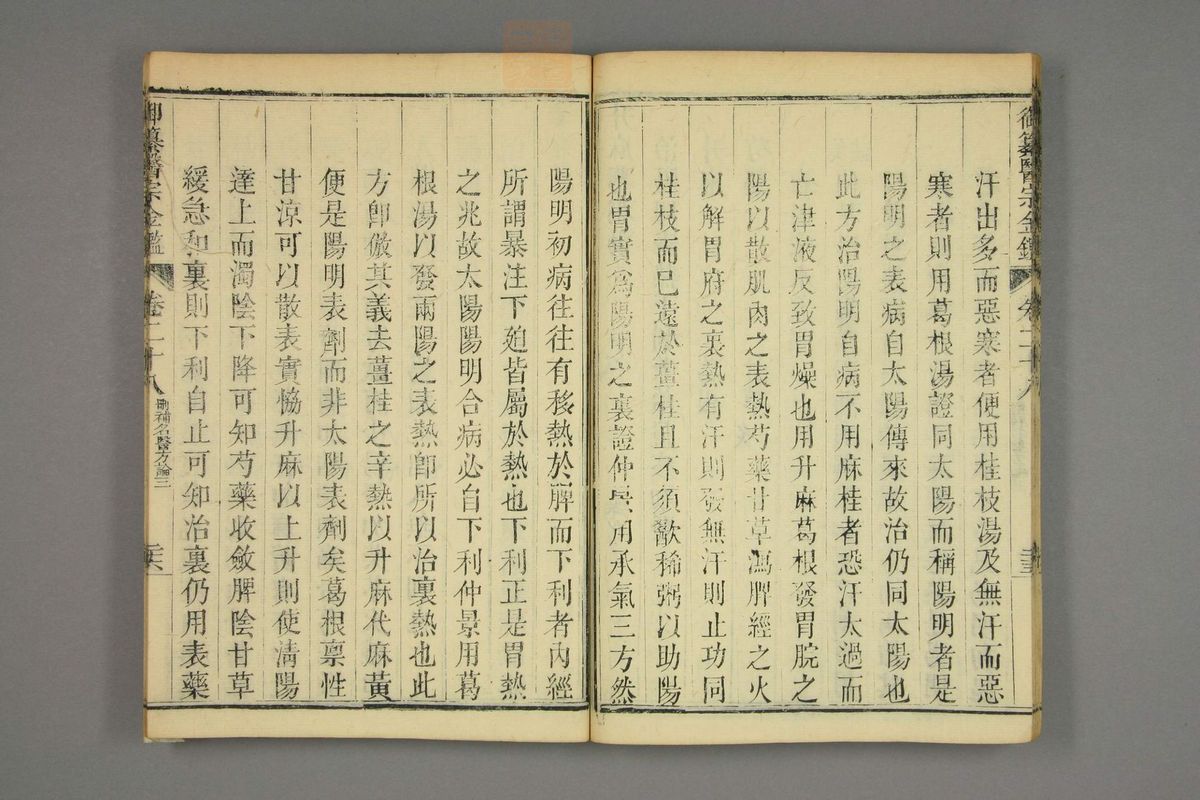 御纂醫宗金鑑
汗出多而惡寒者便用桂枝湯及無汗而惡
寒者則用葛根湯證同太陽而稱陽明者是
陽明之表病自太陽傳來故治仍同太陽也
此方治陽明自病不用麻桂者恐汗太過而
亡津液反致胃燥也用升麻葛根發胃脘之
陽以散肌肉之表熱芍藥甘草瀉脾經之火
以解胃府之裏熱有汗則發無汗則止功同
桂枝而已遠於薑桂且不須歠稀粥以助陽
也胃實為陽明之裏證仲景用承氣三方然
陽明初病往往有移熱於脾而下利者內經
所謂暴注下廹皆屬於熱也下利正是胃熱
之兆故太陽陽明合病必自下利仲景用葛
根湯以發兩陽之表熱卽所以治裏熱也此
方卽倣其義去薑桂之辛熱以升麻代麻黃
便是陽明表劑而非太陽表劑矣葛根稟性
甘涼可以散表實恊升麻以上升則使淸陽
達上而濁陰下降可知芍藥收斂脾陰甘草
緩急和裏則下利自止可知治裏仍用表藥
御纂醫宗金鑑 卷二十八 刪補名醫方論三